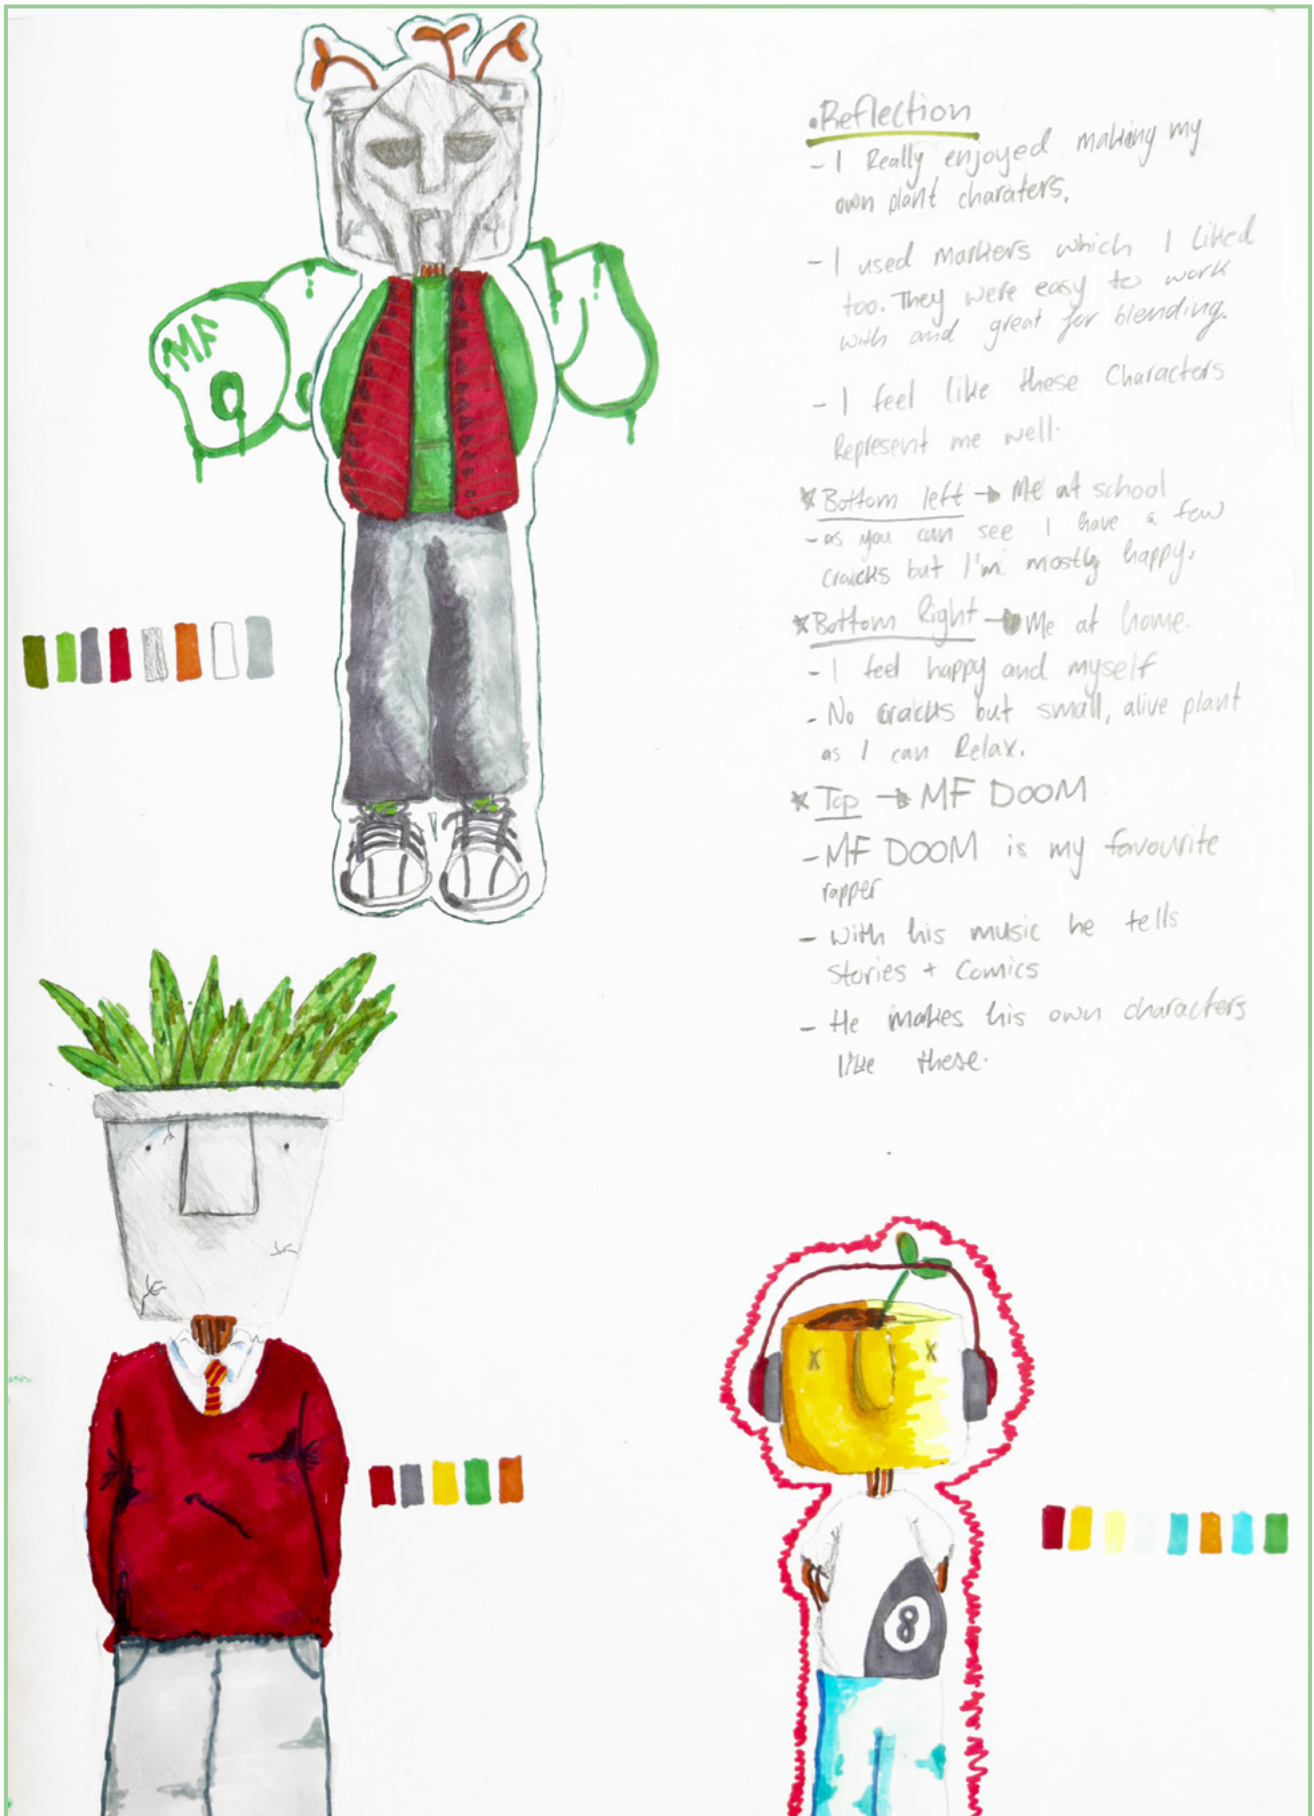 •Reflection
- I Really enjoyed making my
own plant charaters.
- I used markers which I liked
too. They were easy to work
with and great for blending.
- I feel like these Characters
Represent me well.
* Bottom left → Me at school
- as you can see I have a few
cracks but I'm mostly happy.
* Bottom Right → Me at home.
- I feel happy and myself
- No cracks but small, alive plant
as I can Relax.
* Top → MF DOOM
- MF DOOM is my favourite
rapper
- With his music he tells
Stories + Comics
- He makes his own characters
like these.
MF
8